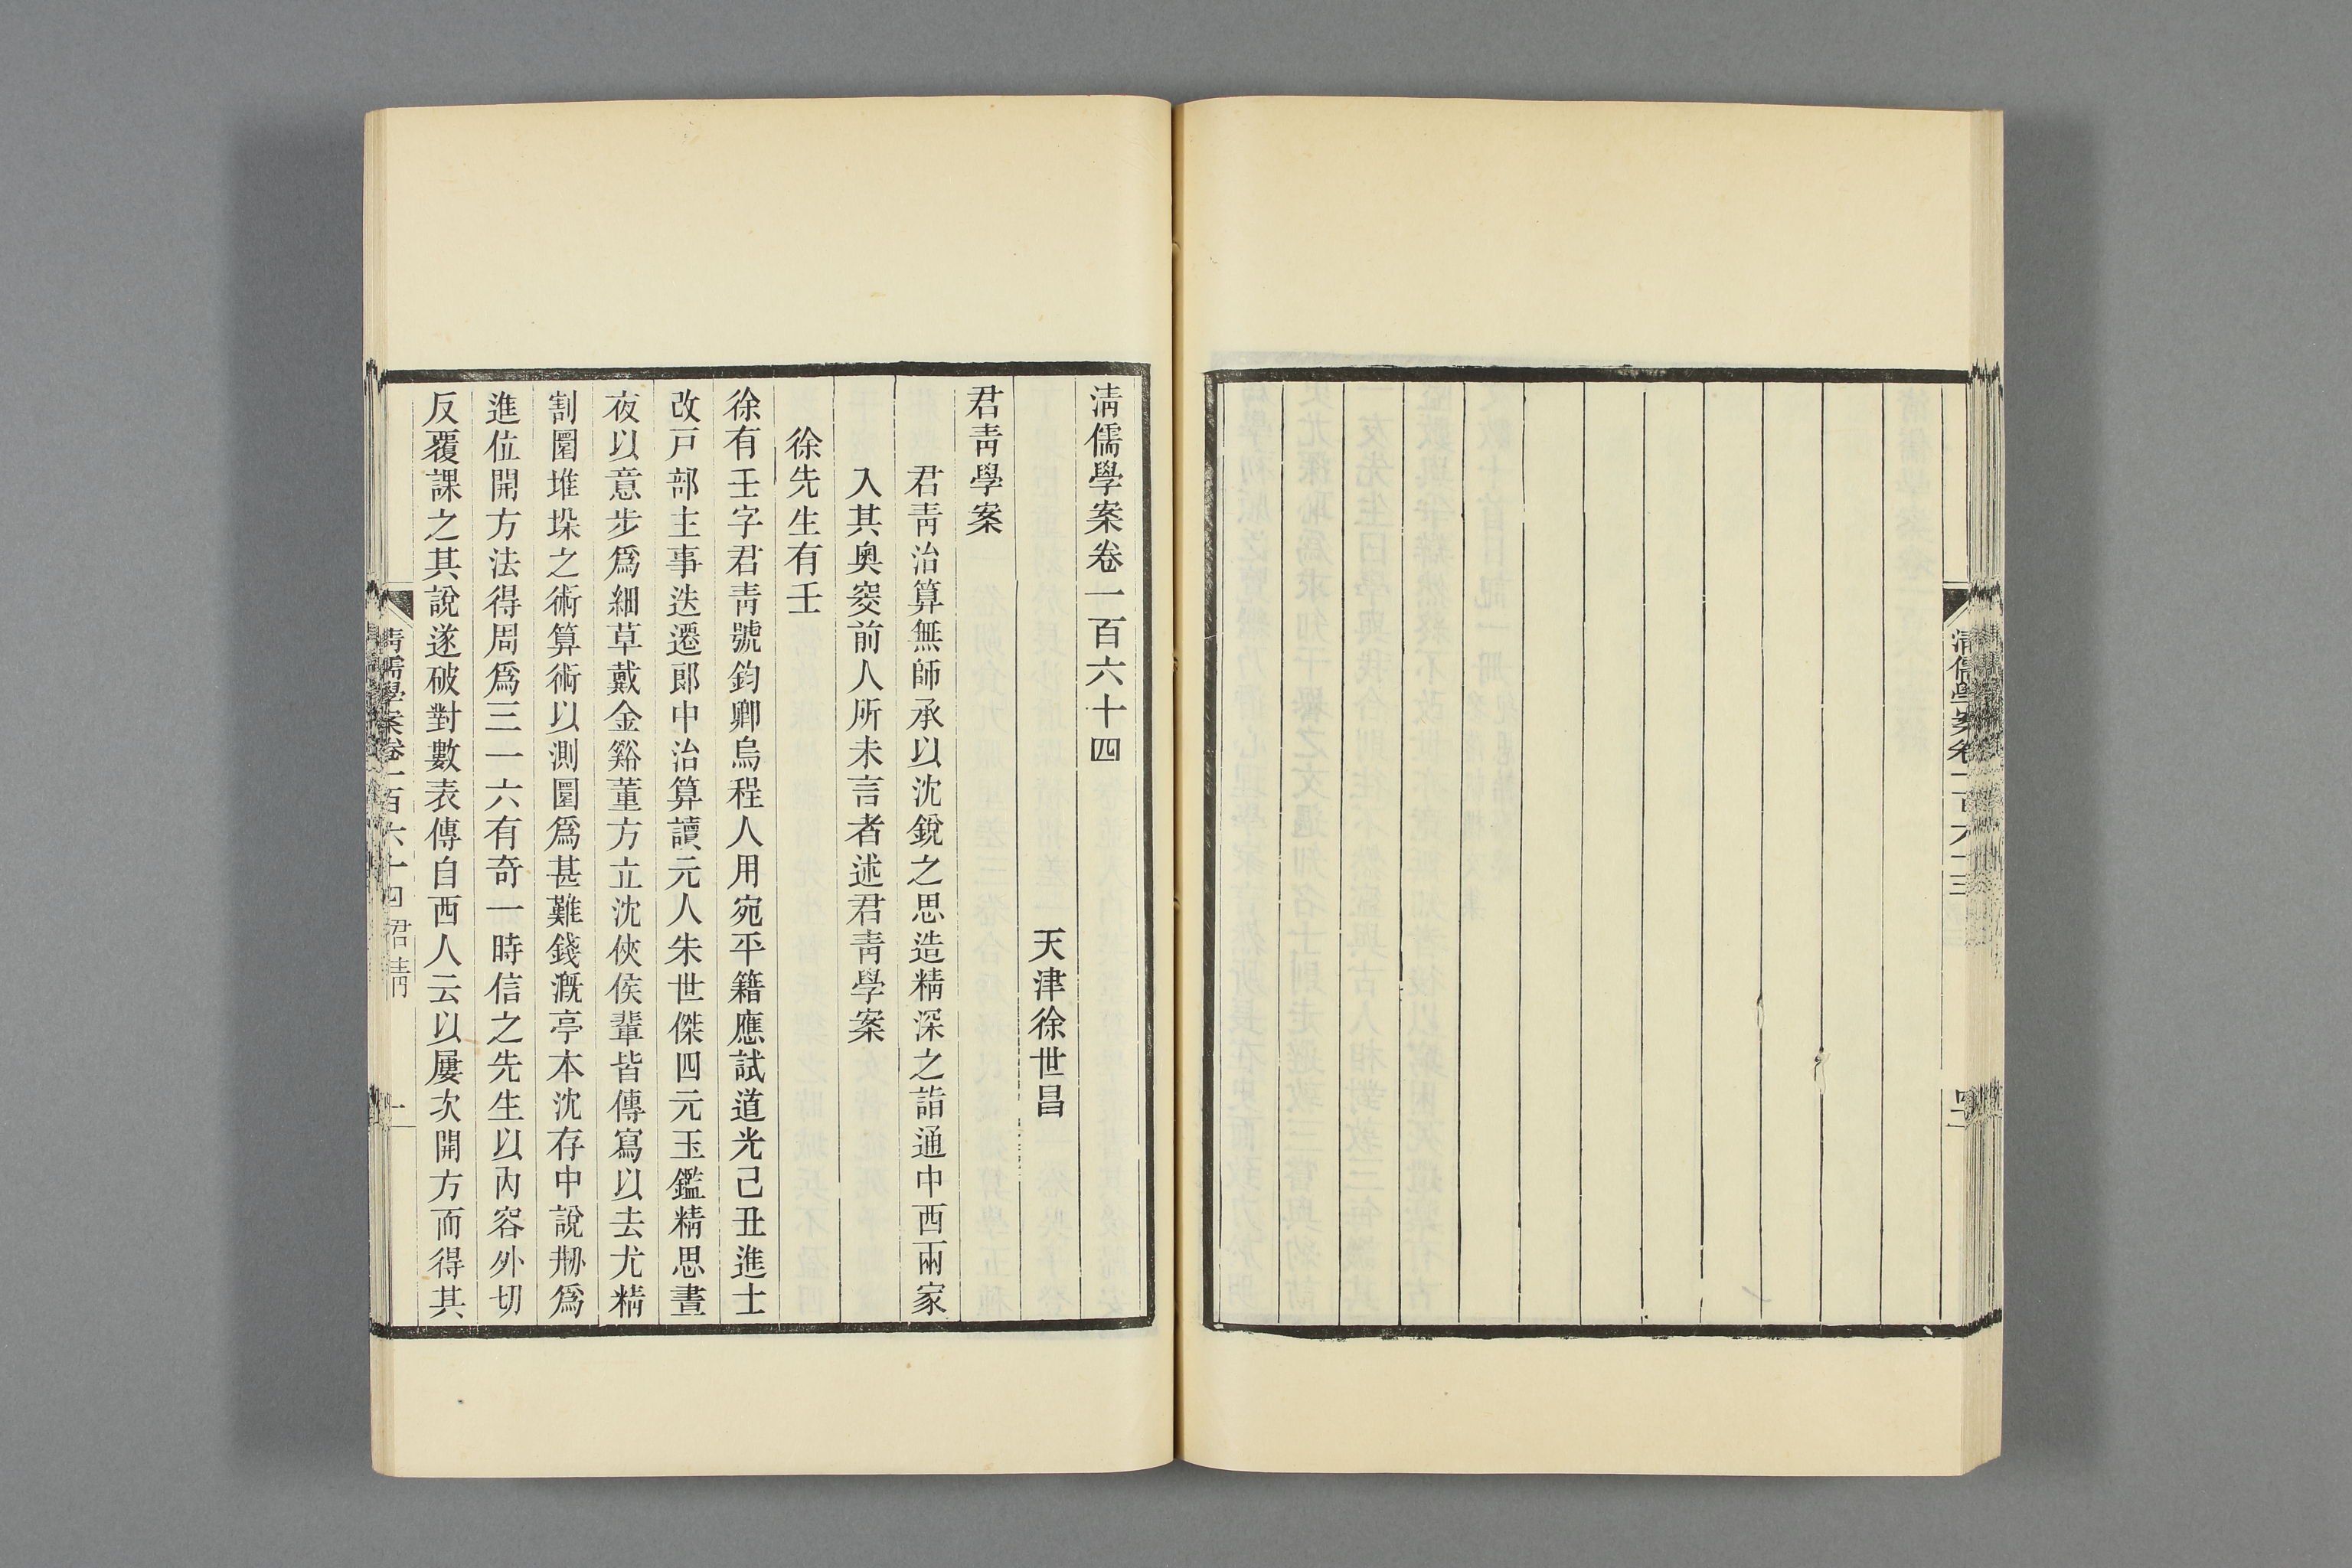 清儒學案卷一百六十三
清儒學案卷一百六十四
天津徐世昌
君青學案
君青治算無師承以沈銳之思造精深之詣通中西兩家
入其奧窔前人所未言者述君青學案
徐先生有壬
徐有壬字君青號鈞卿烏程人用宛平籍應試道光己丑進士
改戸部主事迭遷郎中治算讀元人朱世傑四元玉鑑精思晝
夜以意步爲細草戴金谿董方立沈俠侯輩皆傳寫以去尤精
割圜堆垛之術算術以測圜爲甚難錢漑亭本沈存中說剏爲
進位開方法得周爲三一六有奇一時信之先生以內容外切
反覆課之其說遂破對數表傳自西人云以屢次開方而得其
清儒學案卷一百六十四 君青 一